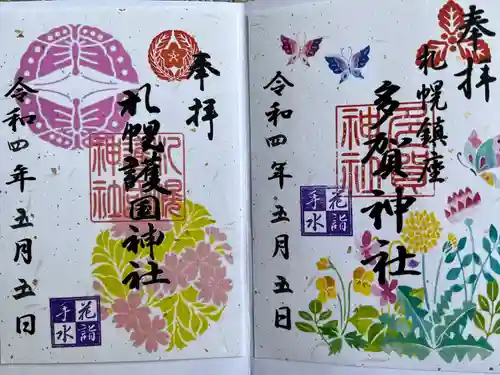 奉拝
札幌護国神社
令和四年五月五日
札幌
護国
神社
花詣
手水
奉拝
札幌鎮座
多賀神社
令和四年五月五日
多賀
神社
花詣
手水